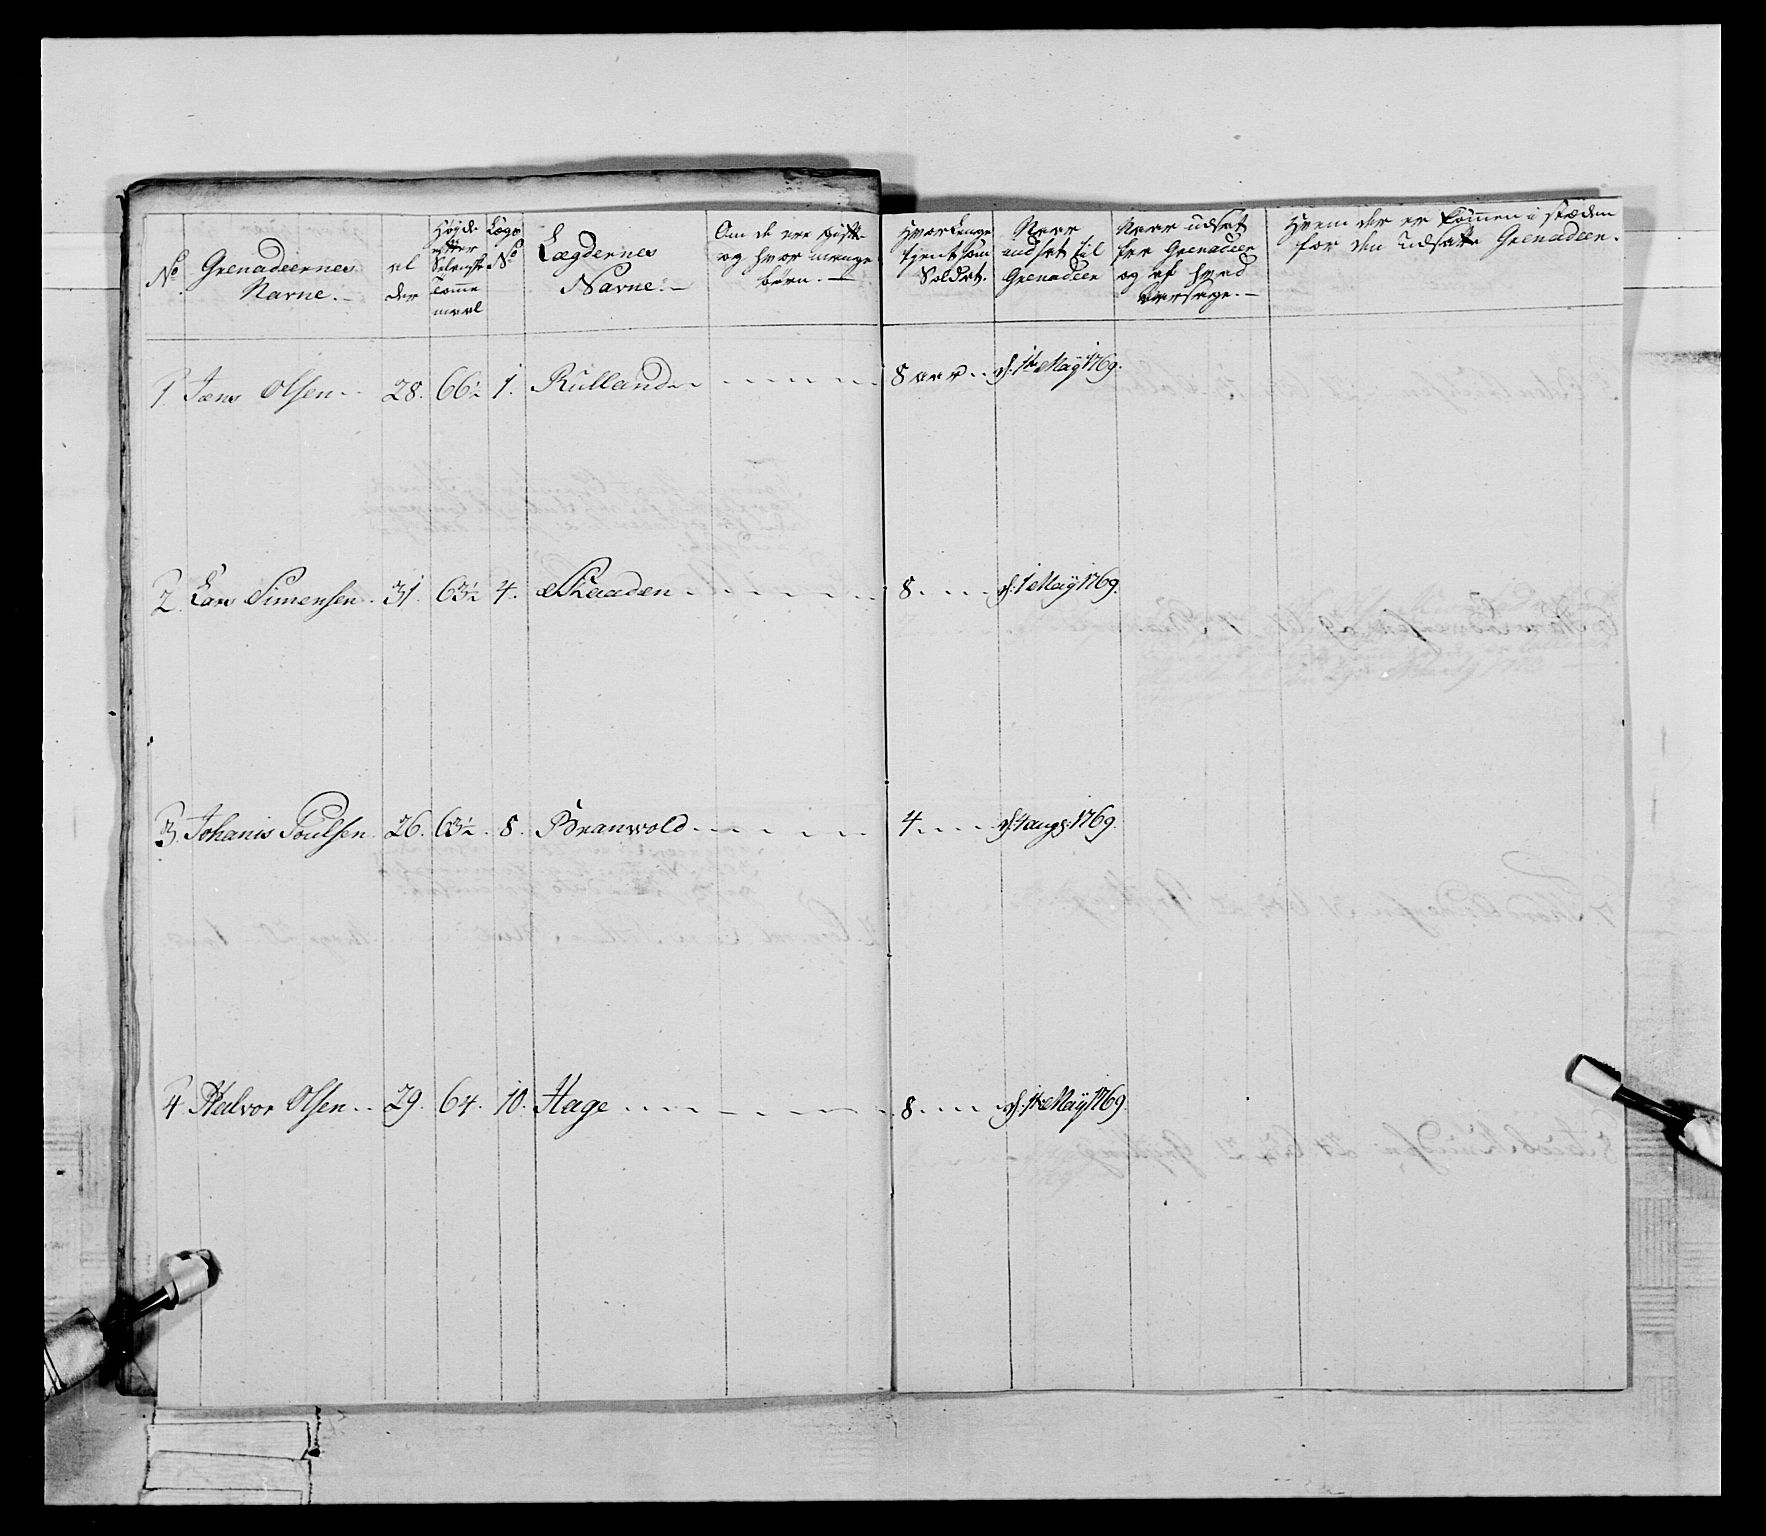 No
Grenadeernes
Navne.
al
der
Høyde
efter
Selensk
Tomme
maal
Lægs
No
Lægdernes
Navne.
Om de ere gifte
og hvor mange
børn.
Hvor længe
tient som
Soldat.
Naar
indsat til
Grenadeer
Naar udsat
fra Grenadeer
og af hvad
Aarsage.
Hvem der er kommen i stæden
for den udsatte Grenadeer.
1. Jens Olsen 28. 66½ 1. Rulland 8 aar d: 1te Maÿ 1769.
2. Lars Simensen 31. 63½ 4. Skaaden 8. d: 1 Maÿ 1769.
3. Johanis Poulsen 26. 63½. 8. Branwold 4. d: 1 aug: 1769.
4. Halvor Olsen 29. 64. 10. Hage 8. d: 1te Maÿ 1769.